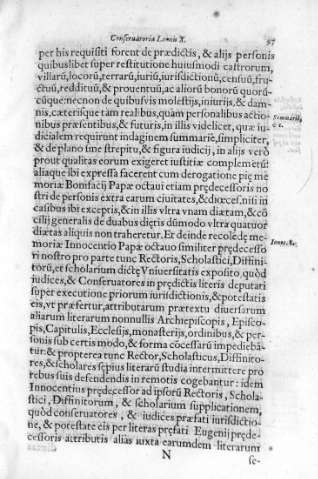 Conseruatoria Leonis X. 97
per his requisiti forent de prædictis, & alijs personis
quibuslibet super restitutione huiusmodi castrorum,
villarũ, locorũ, terrarũ, iuriũ, iurisdictionũ, censuũ, fru-
ctuũ, reddituũ, & prouentuũ, ac aliorũ bonorũ quorũ-
cũque: necnon de quibusuis molestijs, iniurijs, & dam-
nis, cæterisque tam realibus, quàm personalibus actio-
nibus præsentibus, & futuris, in illis videlicet, quæ iu-
dicialem requirunt indaginem summariè, simpliciter,
& de plano sine strepitu, & figura iudicij, in alijs verò
prout qualitas eorum exigeret iustitiæ complemētũ:
aliaque ibi expressa facerent cum derogatione pię me
moriæ Bonifacij Papæ octaui etiam prędecessoris no
stri de personis extra earum ciuitates, & diœces. nisi in
casibus ibi exceptis, & in illis vltra vnam diætam, & cō
cilij generalis de duabus diętis dũmodo vltra quatuor
diætas aliquis non traheretur. Et deinde recoledę me-
moriæ Innocentio Papæ octauo similiter prędecesso
ri nostro pro parte tunc Rectoris, Scholastici, Diffini-
torũ, et scholarium dictę Vniuersitatis exposito, quòd
iudices, & Conseruatores in prędictis literis deputari
super executione priorum iurisdictionis, & potestatis
eis, vt præfertur, attributarum prætextu diuersarum
aliarum literarum nonnullis Archiepiscopis, Episco-
pis, Capitulis, Ecclesijs, monasterijs, ordinibus, & per-
sonis sub certis modo, & forma cōcessarũ impediebã-
tur: & propterea tunc Rector, Scholasticus, Diffinito-
res, & scholares sępius literarũ studia intermittere pro
rebus suis defendendis in remotis cogebantur: idem
Innocentius prędecessor ad ipsorũ Rectoris, Schola-
stici, Diffinitorum, & scholarium supplicationem,
quòd conseruatores, & iudices præfati iurisdictio-
ne, & potestate eis per literas pręfati Eugenij pręde-
cessoris attributis alias iuxta earumdem literarum
N
se-
Summariè,
Innoc. 8.